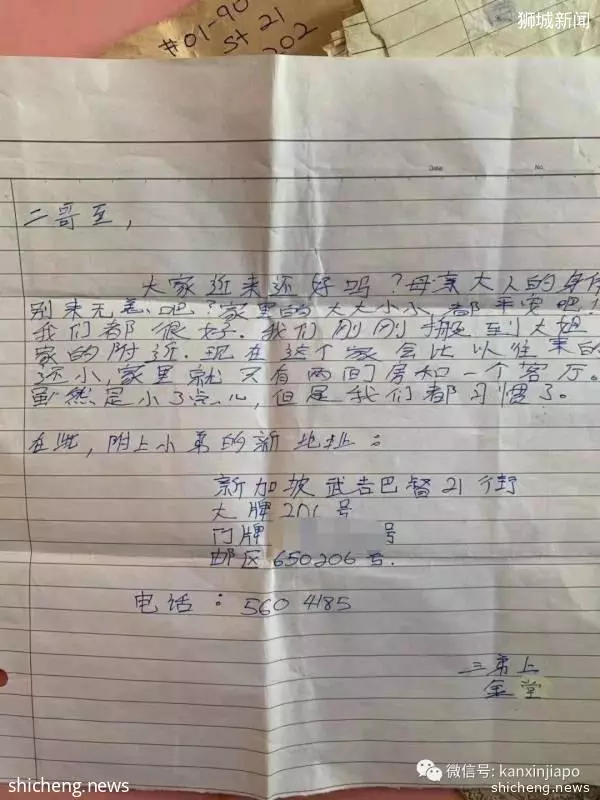 狮城新闻
#01-90
St 21
202
Date
No.
二哥至,
大家近来还好吗?母亲大人的身体
别来无恙吧?家里的大大小小,都平安吧!
我们都很好.我们刚刚搬到大姐
家的附近.现在这个家会比以往来的
还小,家里就只有两间房和一个客厅。
虽然是小了点儿,但是我们都习惯了。
在此,附上小弟的新地址:
新加坡武吉巴督21街
大牌201号
门牌 号
邮区650206号.
电话:560 4185
三弟上
金堂
微信号: kanxinjiapo
shicheng.news
shicheng.news